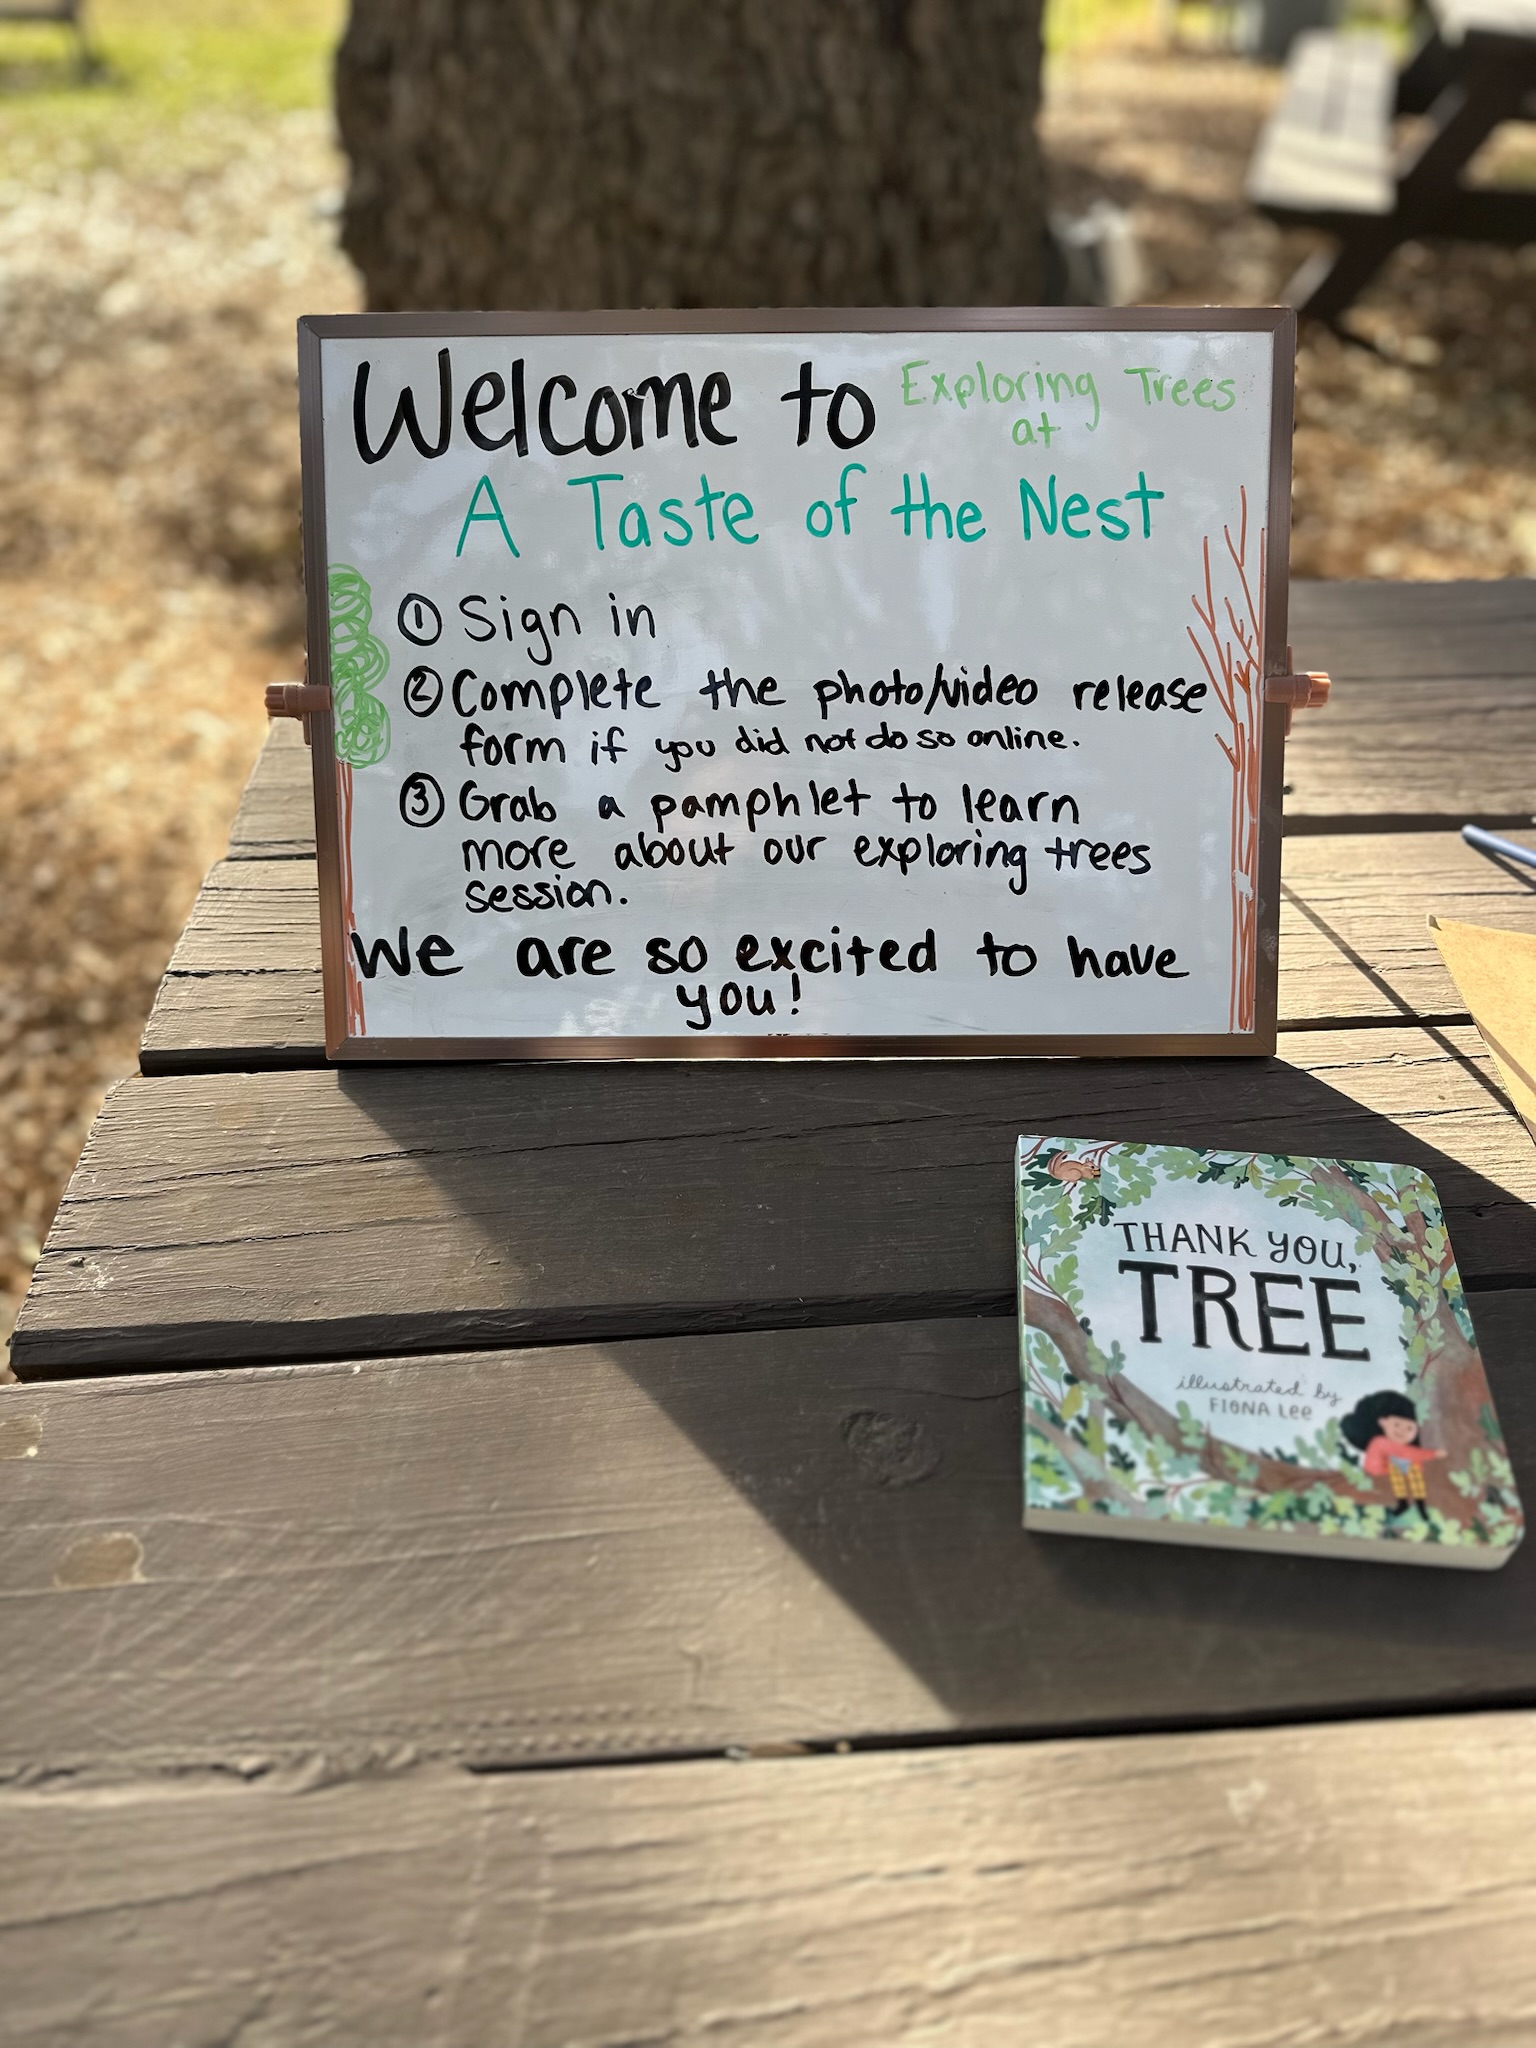 Welcome to Exploring Trees
at
A Taste of the Nest
① Sign in
② Complete the photo/video release
form if you did not do so online.
③ Grab a pamphlet to learn
more about our exploring trees
session.
We are so excited to have
you!
THANK YOU,
TREE
illustrated by
FIONA LEE